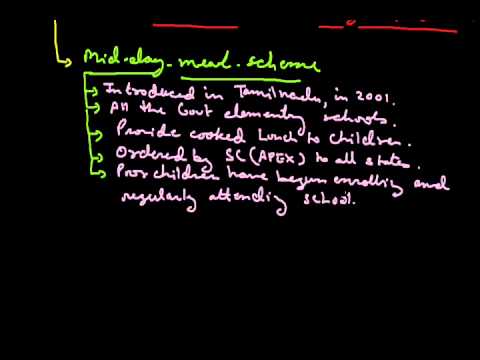 Mid-day-meal-scheme
Introduced in Tamilnadu, in 2001.
All the Govt elementry schools.
Provide cooked lunch to children.
Ordered by SC(APEX) to all states.
Poor children have begun enrolling and
regularly attending school.